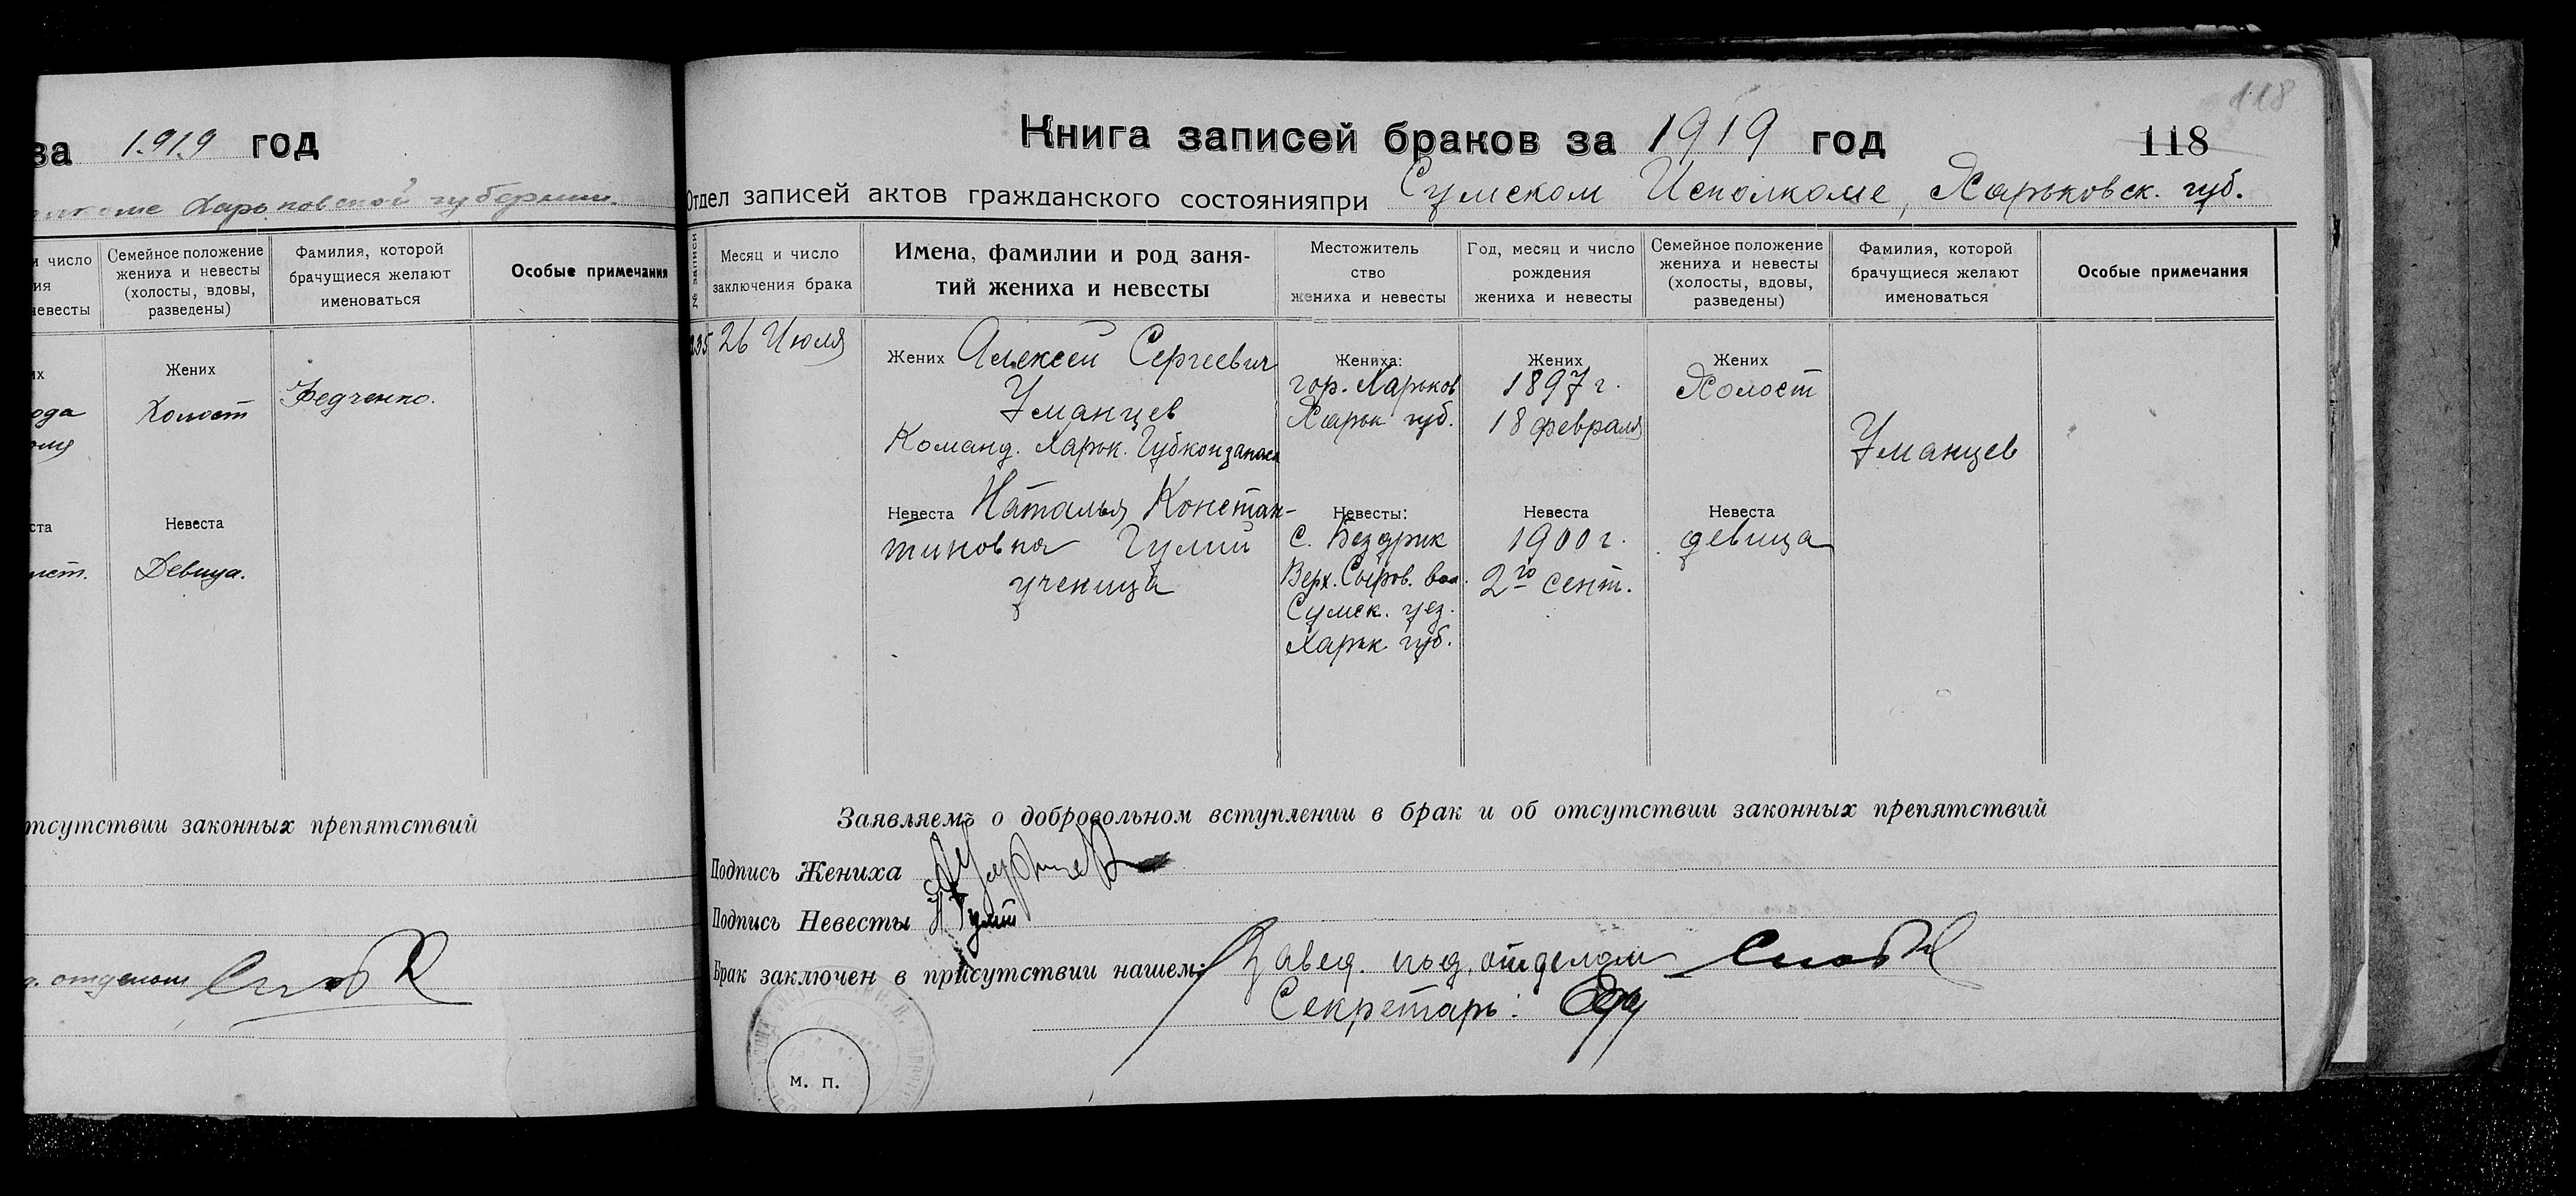 за 1919 год
Харьковской губернии.
и число
ия
невесты
Семейное положение
жениха и невесты
(холосты, вдовы,
разведены)
Фамилия, которой
брачущиеся желают
именоваться
Особые примечания
их
Жених
Холост
Федченко.
ода
ста
Невеста
Девица.
отсутствии законных препятствий
отделом
118
Книга записей браков за 1919 год
118
Отдел записей актов гражданского состоянияпри Сумском Исполкоме, Харьковск. губ.
№ записи
Месяц и число
заключения брака
Имена, фамилии и род заня-
тий жениха и невесты
Местожитель
ство
жениха и невесты
Год, месяц и число
рождения
жениха и невесты
Семейное положение
жениха и невесты
(холосты, вдовы,
разведены)
Фамилия, которой
брачущиеся желают
именоваться
Особые примечания
235
26 Июля
Жених Алексей Сергеевич
Уманцев
Команд. Харьк. Губконзапаса
Жениха:
гор. Харьков
Харьк губ.
Жених
1897 г.
18 февраля
Жених
Холост
Уманцев
Невеста Наталья Констан-
тиновна Гулий
ученица
Невесты:
с. Бездрик
Верх. Сыров. вол.
Сумск. уез.
Харьк губ.
Невеста
1900 г.
2го сент.
Невеста
девица
Заявляемъ о добровольном вступлении в брак и об отсутствии законных препятствий
Подпись Жениха АУманцев
Подпись Невесты Н Гулий
Брак заключен в присутствии нашем: Завед. под. отделом
Секретарь:
м. п.